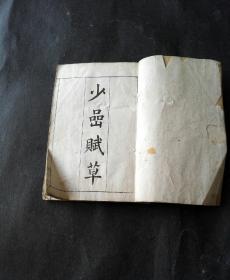 少嵒賦草